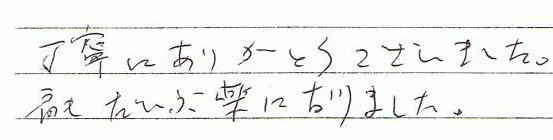 丁寧にありがとうございました。
肩もだいぶ楽になりました。